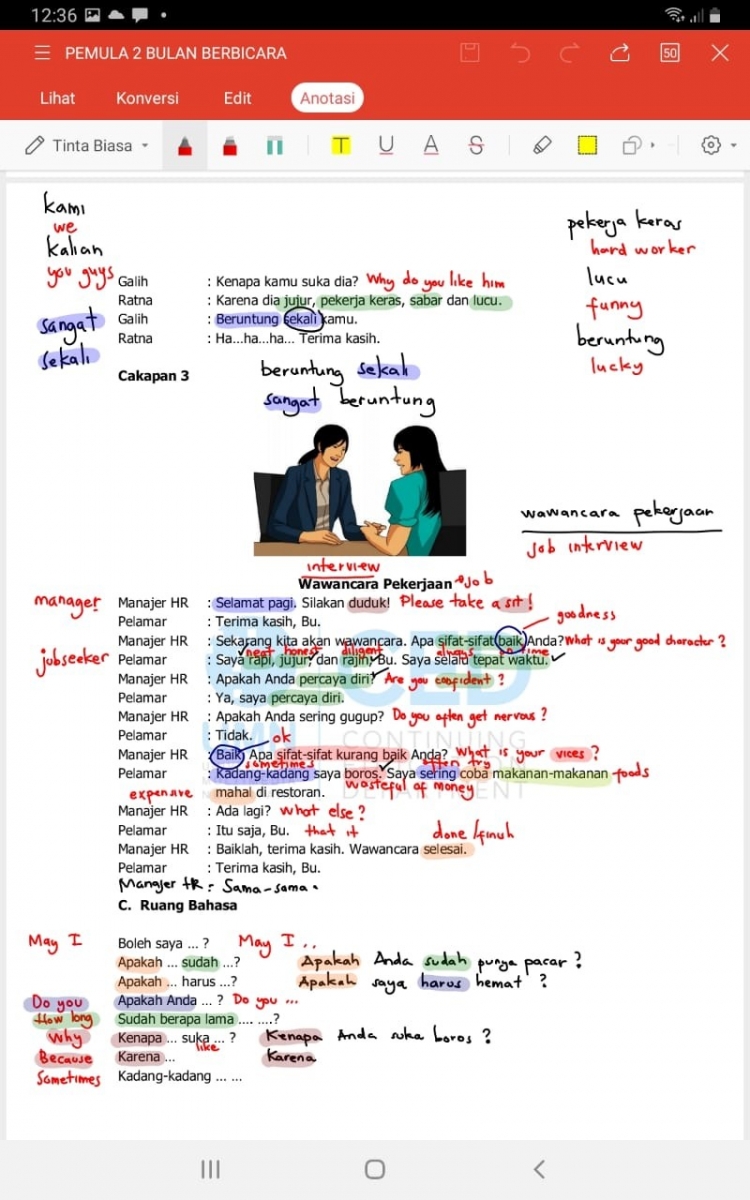 12:36
PEMULA 2 BULAN BERBICARA
50
Lihat Konversi Edit Anotasi
Tinta Biasa T U A S
kami
we
kalian
you guys
pekerja keras
hard worker
lucu
funny
beruntung
lucky
Galih : Kenapa kamu suka dia? Why do you like him
Ratna : Karena dia jujur, pekerja keras, sabar dan lucu.
sangat Galih : Beruntung sekali kamu.
sekali Ratna : Ha...ha...ha... Terima kasih.
Cakapan 3
beruntung sekali
sangat beruntung
wawancara pekerjaan
job interview
interview
Wawancara Pekerjaan job
manager Manajer HR : Selamat pagi. Silakan duduk! Please take a sit!
Pelamar : Terima kasih, Bu.
goodness
Manajer HR : Sekarang kita akan wawancara. Apa sifat-sifat baik Anda? What is your good character?
neat honest diligent always on time
jobseeker Pelamar : Saya rapi, jujur, dan rajin, Bu. Saya selalu tepat waktu.
Manajer HR : Apakah Anda percaya diri? Are you confident?
Pelamar : Ya, saya percaya diri.
Manajer HR : Apakah Anda sering gugup? Do you often get nervous?
Pelamar : Tidak.
ok
Manajer HR : Baik. Apa sifat-sifat kurang baik Anda? What is your vices?
sometimes often try
Pelamar : Kadang-kadang saya boros. Saya sering coba makanan-makanan foods
wasteful of money
expensive mahal di restoran.
Manajer HR : Ada lagi? What else?
Pelamar : Itu saja, Bu. that it
done / finish
Manajer HR : Baiklah, terima kasih. Wawancara selesai.
Pelamar : Terima kasih, Bu.
Manajer HR : Sama-sama.
C. Ruang Bahasa
May I Boleh saya ... ? May I ..
Apakah ... sudah ...? Apakah Anda sudah punya pacar?
Apakah ... harus ...? Apakah saya harus hemat?
Do you Apakah Anda ... ? Do you ...
How long Sudah berapa lama .... ....?
Why Kenapa ... suka ... ? Kenapa Anda suka boros?
like
Because Karena ... Karena
Sometimes Kadang-kadang ... ...
UMN
CONTINUING